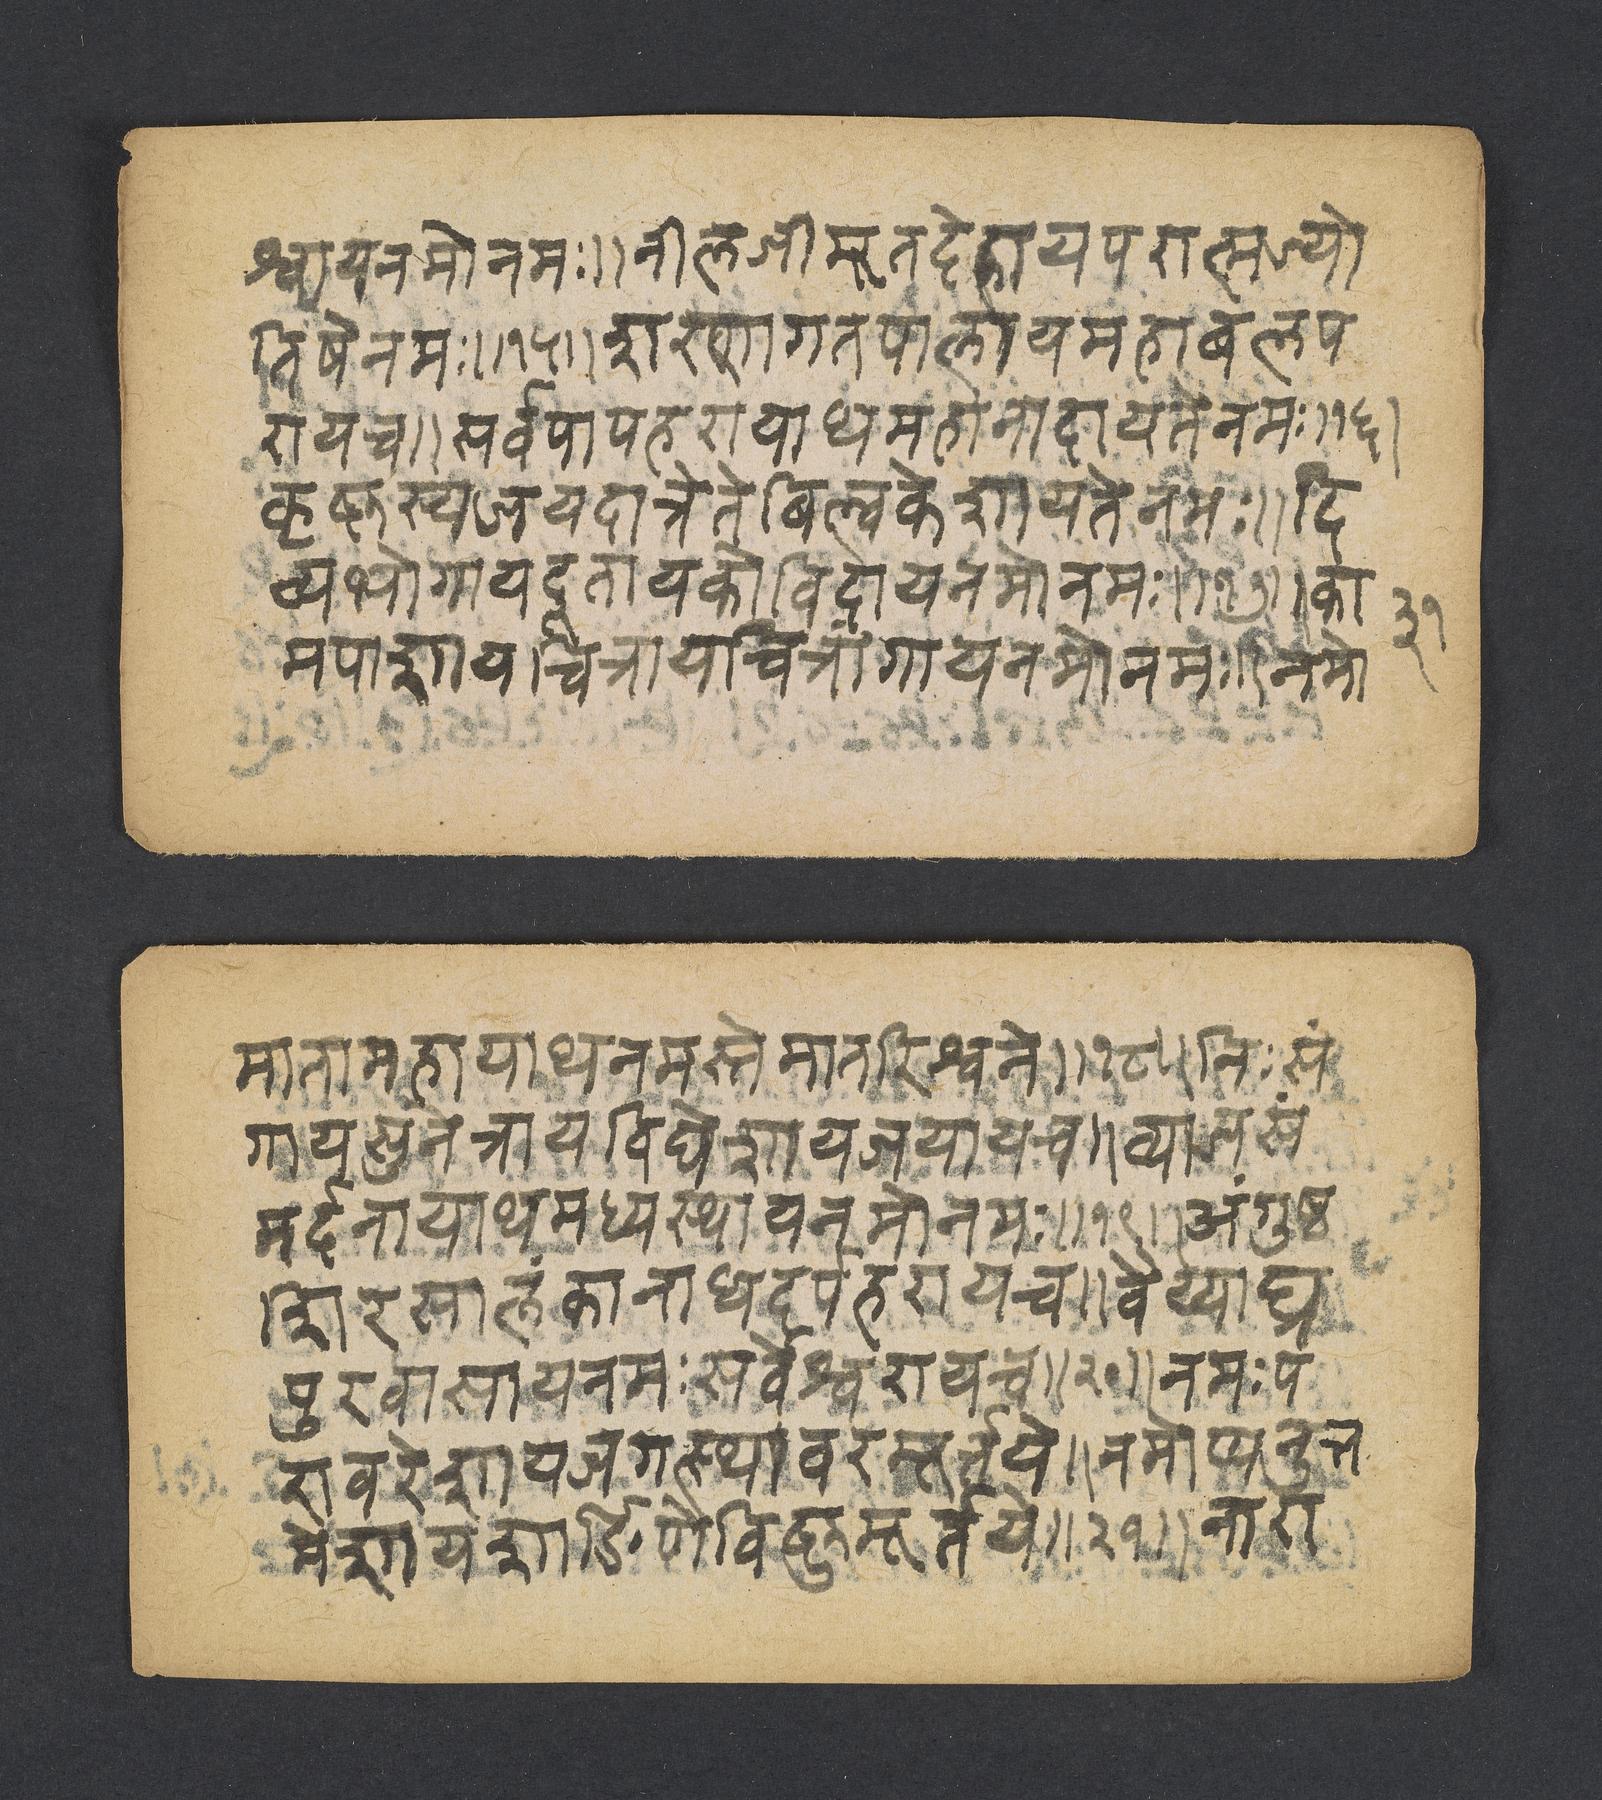 श्वायनमोनमः।।नीलजीमूतदेहायपरात्मज्यो
तिषेनमः।।१५।।शरणागतपालायमहाबलप
रायच।।सर्वपापहरायाथमहानादायतेनमः।।१६।
कृष्णस्यजयदात्रेतेबिल्वकेशायतेनमः।।दि
व्यभ्योगायदूतायकोविदायनमोनमः।।१७।।का
३१
मपाशायचित्रायचित्रांगायनमोनमः।।नमो
मातामहायाथनमस्तेमातरिश्वने।।१८।।निःसं
गायसुनेत्रायविघेशायजयायच।।व्यालसं
मर्दनायाथमध्यस्थायनमोनमः।।१९।।अंगुष्ठ
शिरसालंकानाथदर्पहरायच।।वैय्याघ्र
पुरवासायनमःसर्वेश्वरायच।।२०।।नमःप
रावरेशायजगत्स्थावरमूर्त्तये।।नमोप्यनुत्त
मेशायशार्ङिणेविष्णुमूर्तये।।२१।।नारा